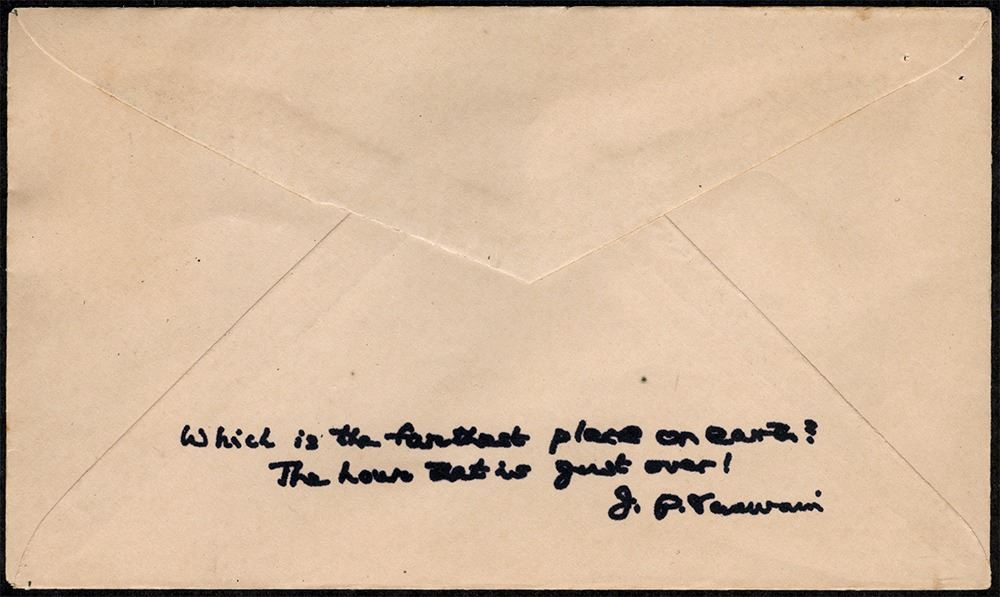 Which is the farthest place on earth?
The hour that is just over!
J. P. Vaswani